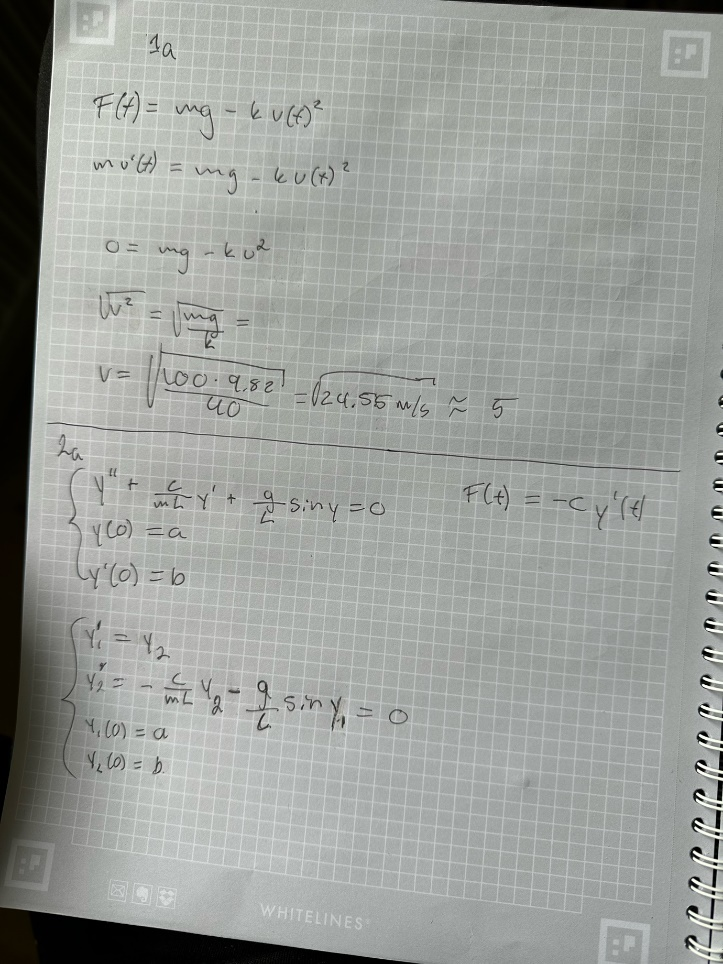 1a
F(t) = mg - k v(t)²
m v'(t) = mg - k v(t)²
0 = mg - k v²
√v² = √(mg/k) =
v = √(100 · 9.82 / 40) = √24.55 m/s ≈ 5
2a
y'' + c/mL y' + g/L sin y = 0
F(t) = -c y'(t)
y(0) = a
y'(0) = b
y₁' = y₂
y₂' = - c/mL y₂ - g/L sin y₁ = 0
y₁(0) = a
y₂(0) = b
WHITELINES®